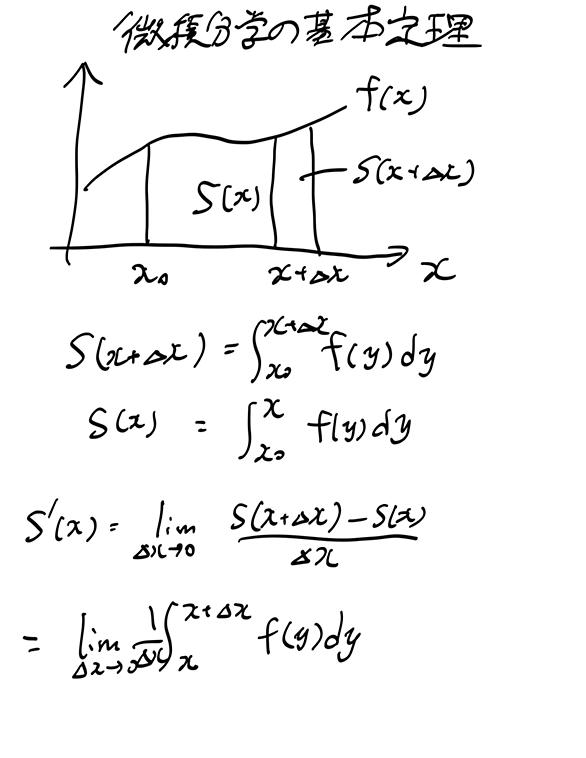 微積分学の基本定理
f(x)
S(x)
S(x+Δx)
x₀ x+Δx x
S(x+Δx) = ∫_{x₀}^{x+Δx} f(y)dy
S(x) = ∫_{x₀}^{x} f(y)dy
S'(x) = lim_{Δx→0} (S(x+Δx)-S(x))/Δx
= lim_{Δx→0} 1/Δx ∫_{x}^{x+Δx} f(y)dy